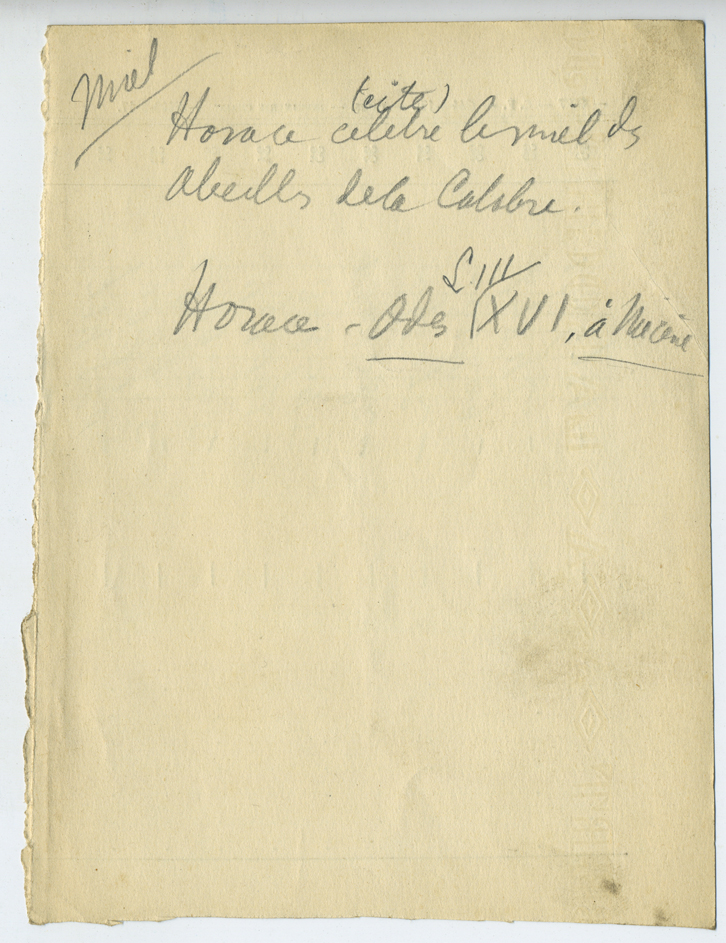 Miel
(cite)
Horace célèbre le miel des
Abeilles de la Calabre.
L. III
Horace - Odes XVI, à Mécène